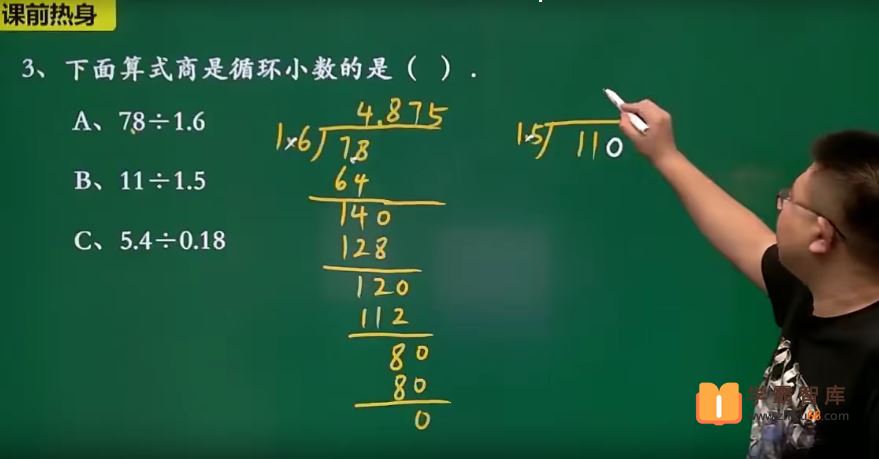 课前热身
3、下面算式商是循环小数的是（ ）.
A、78÷1.6
B、11÷1.5
C、5.4÷0.18
4.875
1.6 78
64
140
128
120
112
80
80
0
1.5 110
学霸智库